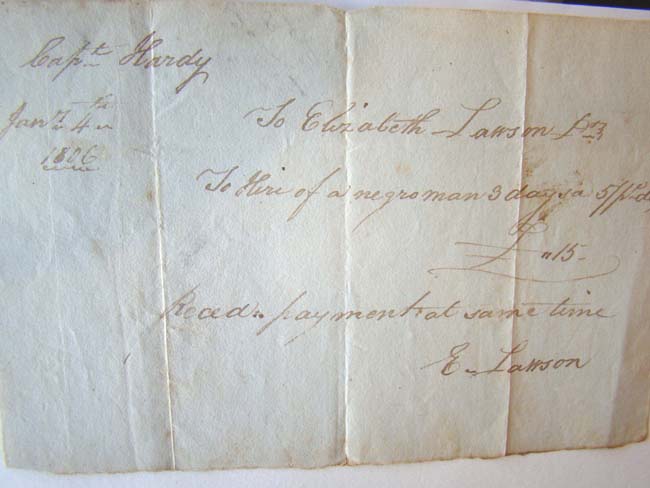 Capt. Hardy
Jany. 4th
1806
To Elizabeth Lawson Dr.
To Hire of a negro man 3 days a 5/ pr. d
£ "15-
Recd. payment at same time
E. Lawson